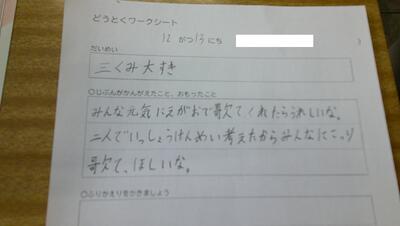 どうとくワークシート
12 がつ 13 にち
だいめい
三くみ大すき
○じぶんがかんがえたこと、おもったこと
みんな元気にえがおで歌ってくれたらうれしいな。
二人でいっしょうけんめい考えたからみんなにこり
歌って、ほしいな。
○ふりかえりをかきましょう